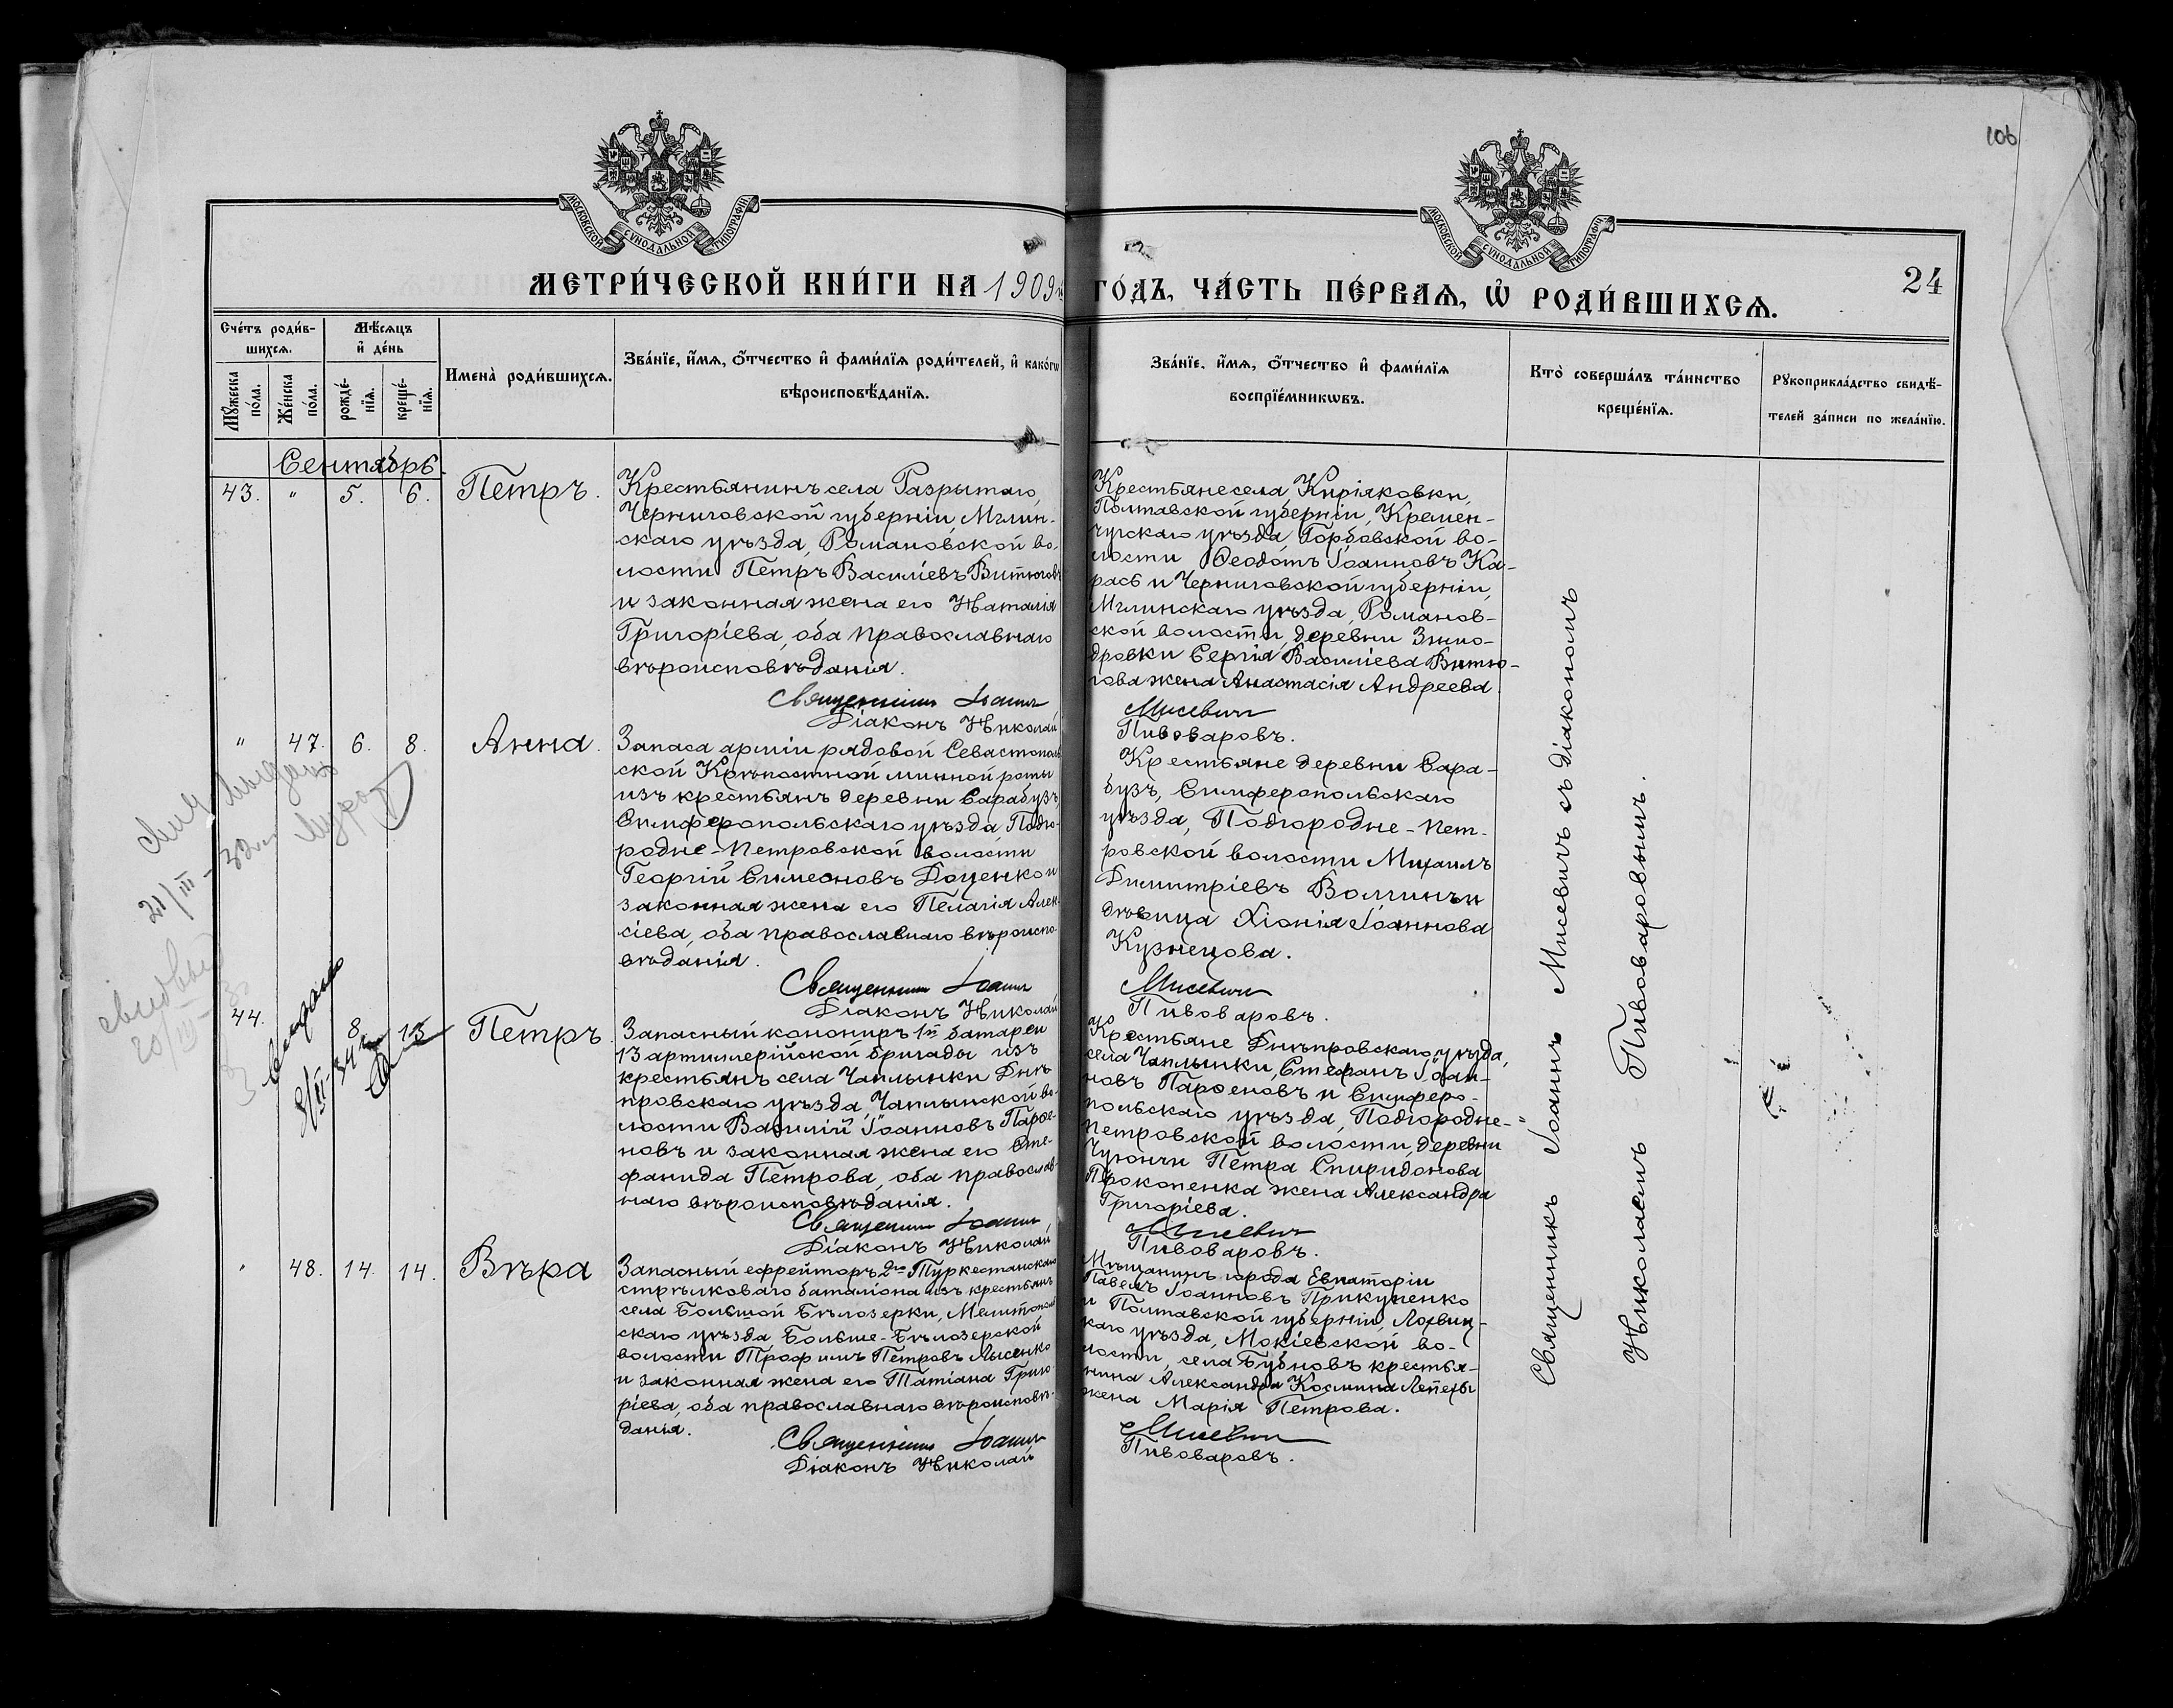 106
МОСКОВСКОЙ СѴНОДАЛЬНОЙ ТИПОГРАФІИ
МОСКОВСКОЙ СѴНОДАЛЬНОЙ ТИПОГРАФІИ
МЕТРИ́ЧЕСКОЙ КНИ́ГИ НА 1909й ГО́ДЪ, ЧА́СТЬ ПЕ́РВАѦ, Ѡ҆ РОДИ́ВШИХСѦ.
24
Сче́тъ роди́в-
шихсѧ.
Мѣ́сѧцъ
и҆ де́нь
Мꙋ́жеска
по́ла.
Же́нска
по́ла.
рожде́-
нїѧ.
креще́-
нїѧ.
Имена̀ роди́вшихсѧ.
Зва́нїе, и҆́мѧ, ѻ҆́тчество и҆ фами́лїѧ роди́телей, и҆ како́гѡ
вѣроисповѣ́данїѧ.
Зва́нїе, и҆́мѧ, ѻ҆́тчество и҆ фами́лїѧ
воспрїе́мникѡвъ.
Кто̀ соверша́лъ та́инство
креще́нїѧ.
Рꙋкоприкла́дство свидѣ́-
телей за́писи по жела́нїю.
Сентябрь.
43. " 5. 6. Петръ.
Крестьянинъ села Разрытаго,
Черниговской губерніи, Мглин-
скаго уѣзда, Романовской во-
лости Петръ Василіевъ Витюговъ
и законная жена его Наталія
Григоріева, оба православнаго
вѣроисповѣданія.
Священникъ Іоаннъ
Діаконъ Николай
Крестьяне села Киріяковки,
Полтавской губерніи, Кремен-
чугскаго уѣзда, Горбовской во-
лости Ѳеодотъ Іоанновъ Ка-
рась и Черниговской губерніи,
Мглинскаго уѣзда, Романов-
ской волости, деревни
Сергія Василіева Витю-
гова жена Анастасія Андреева.
Мисевичъ
Пивоваровъ.
" 47. 6. 8. Анна.
Запаса арміи рядовой Севастополь
ской Крѣпостной минной роты
изъ крестьянъ деревни Сарабузъ,
Симферопольскаго уѣзда, Подго-
родне-Петровской волости
Георгій Симеоновъ Доценко и
законная жена его Пелагія Алек-
сіева, оба православнаго вѣроиспо-
вѣданія.
Священникъ Іоаннъ
Діаконъ Николай
Крестьяне деревни Сара-
бузъ, Симферопольскаго
уѣзда, Подгородне-Пет-
ровской волости Михаилъ
Димитріевъ Волчинъ и
дѣвица Хіонія Іоаннова
Кузнецова.
Мисевичъ
Пивоваровъ.
44. 8. 13 Петръ.
Запасный канониръ 1й батареи
13 артиллерійской бригады изъ
крестьянъ села Чаплынки Днѣ-
провскаго уѣзда, Чаплынской во-
лости Василій Іоанновъ Парѳе-
новъ и законная жена его Сте-
фанида Петрова, оба православ-
наго вѣроисповѣданія.
Священникъ Іоаннъ
Діаконъ Николай
Крестьяне Днѣпровскаго уѣзда,
села Чаплынки, Стефанъ Іоан-
новъ Парѳеновъ и Симферо-
польскаго уѣзда, Подгородне-
Петровской волости, деревни
Чуюнчи Петра Спиридонова
Прокопенка жена Александра
Григоріева.
Мисевичъ
Пивоваровъ.
" 48. 14. 14. Вѣра
Запасный ефрейторъ 2го Туркестанскаго
стрѣлковаго баталіона изъ крестьянъ
села Большой Бѣлозерки, Мелитополь
скаго уѣзда, Больше-Бѣлозерской
волости Трофимъ Петровъ Лысенко
и законная жена его Татіана Григо-
ріева, оба православнаго вѣроисповѣ-
данія.
Священникъ Іоаннъ
Діаконъ Николай
Мѣщанинъ города Евпаторіи
Павелъ Іоанновъ Прикупенко
и Полтавской губерніи, Лохвиц-
каго уѣзда, Мокіевской во-
лости, села Бубновъ крестья-
нина Александра Космина Лепехи
жена Марія Петрова.
Мисевичъ
Пивоваровъ.
Священникъ Іоаннъ Мисевичъ съ діакономъ
Николаемъ Пивоваровымъ.